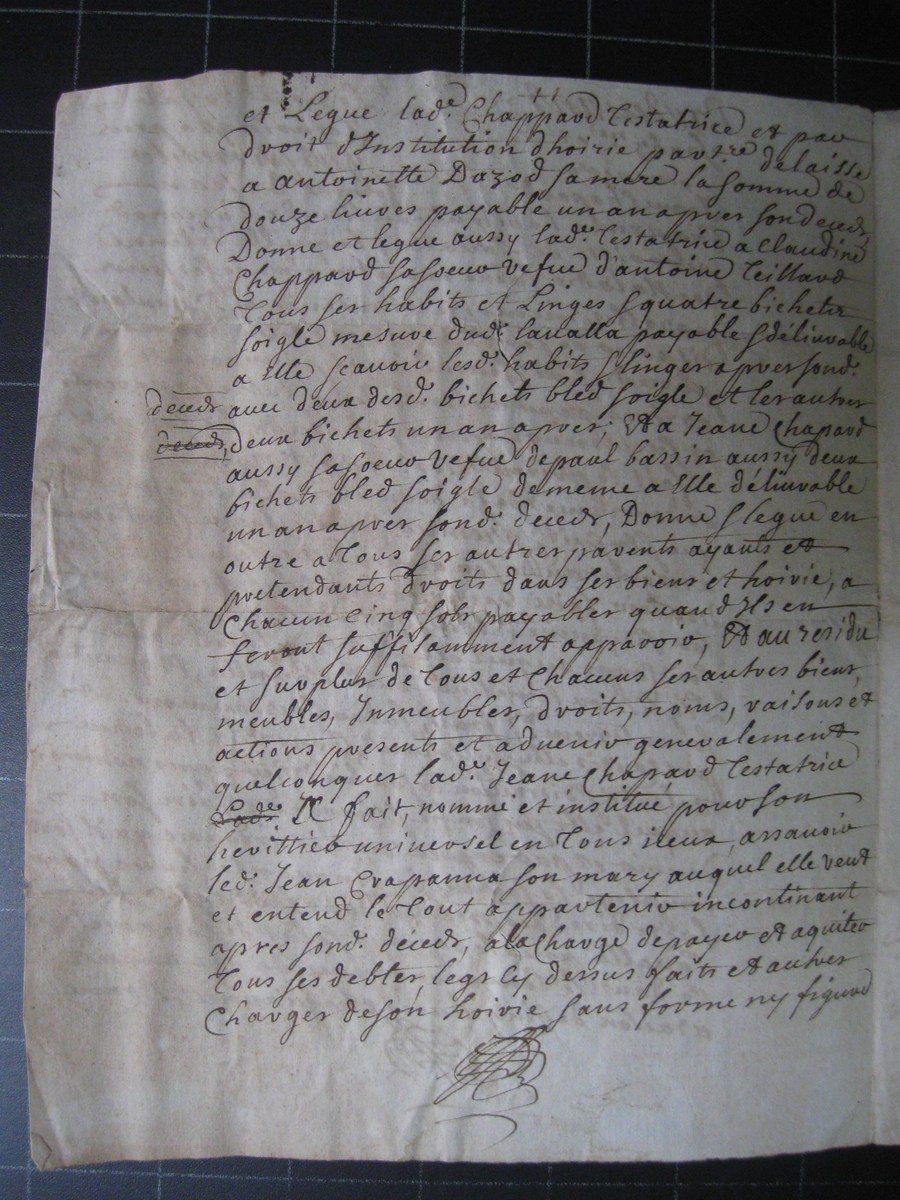 et Legue lad.e Chappard Testatrice et par
droit d'Institution dhoirie part.re delaisse
a antoinette Dazod sa mere la somme de
douze livres payable un an apres son deces,
Donne et legue aussy lad.e Testatrice a Claudine
Chappard sa soeur vefue d'antoine Teillard
Tous ses habits et Linges & quatre bichets
soigle mesure dud. Lavalla payable & déliurable
a Elle scavoir lesd. habits & linges apres sond.
deceds avec deux desd. bichets bled soigle et les autres
deceds, deux bichets un an apres; Et a Jeane Chapard
aussy sa soeur vefue de paul bassin aussy deux
bichets bled soigle de meme a Elle déliurable
un an apres sond. deceds, Donne & legue en
outre a Tous ses autres parents ayants et
pretendants droits dans ses biens et hoirie, a
Chacun Cinq sols payables quand Ils en
feront suffisamment apparoir, Et au residu
et surplus de Tous et Chacuns ses autres biens,
meubles, Inmeubles, droits, noms, raisons et
actions presents et aduenir generalement
quelconques lad.e Jeane Chapard Testatrice
Lad.e A fait, nommé et institué pour son
herittier universel en Tous iceux, assavoir
led. Jean Crapanna son mary auquel elle veut
et entend le Tout appartenir incontinant
apres sond. déceds, a la Charge de payer et aquiter
Tous ses debtes, legs Cy dessus faits et autres
Charges de son hoirie sans forme ny figure